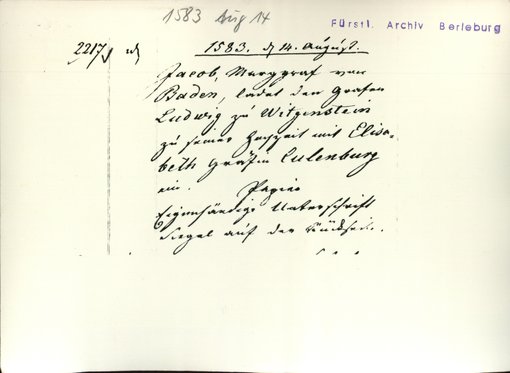 1583 Aug 14
Fürstl. Archiv Berleburg
2217
1583. d 14. August.
Jacob, Marggraf von
Baden, ladet den Grafen
Ludwig zu Witgenstein
zu seiner Hochzeit mit Elisa-
beth Gräfin Culenburg
ein. Papier
Eigenhändige Unterschrift
Siegel auf der Rückseite.